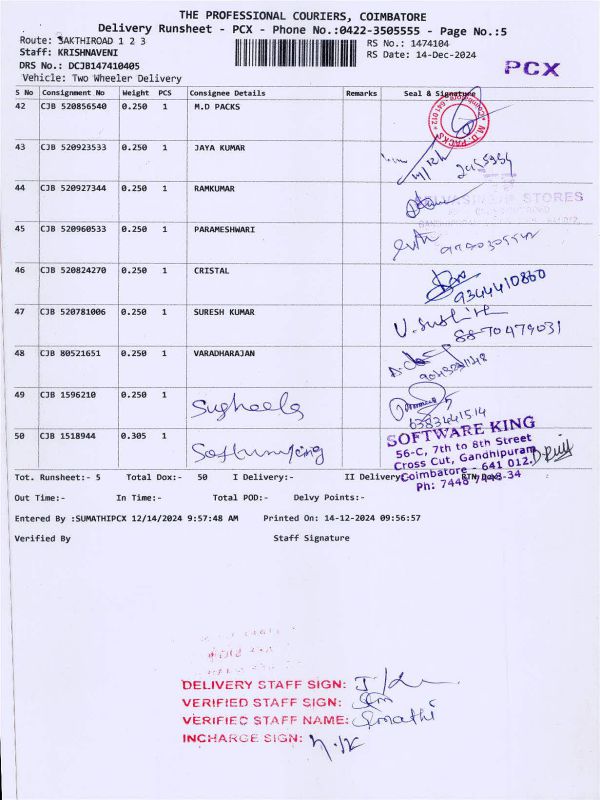 THE PROFESSIONAL COURIERS, COIMBATORE
Delivery Runsheet - PCX - Phone No.:0422-3505555 - Page No.:5
Route: SAKTHIROAD 1 2 3
RS No.: 1474104
Staff: KRISHNAVENI
RS Date: 14-Dec-2024
DRS No.: DCJB147410405
PCX
Vehicle: Two Wheeler Delivery
S No Consignment No Weight PCS Consignee Details Remarks Seal & Signature
42 CJB 520856540 0.250 1 M.D PACKS
43 CJB 520923533 0.250 1 JAYA KUMAR
44 CJB 520927344 0.250 1 RAMKUMAR
STORES
45 CJB 520960533 0.250 1 PARAMESHWARI
46 CJB 520824270 0.250 1 CRISTAL
9344410860
47 CJB 520781006 0.250 1 SURESH KUMAR
88-70479031
48 CJB 80521651 0.250 1 VARADHARAJAN
49 CJB 1596210 0.250 1 Sugheela
6383441514
50 CJB 1518944 0.305 1
SOFTWARE KING
56-C, 7th to 8th Street
Cross Cut, Gandhipuram
Coimbatore - 641 012.
Ph: 7448 7448-34
Tot. Runsheet:- 5 Total Dox:- 50 I Delivery:- II Delivery:-
Out Time:- In Time:- Total POD:- Delvy Points:-
Entered By :SUMATHIPCX 12/14/2024 9:57:48 AM Printed On: 14-12-2024 09:56:57
Verified By Staff Signature
DELIVERY STAFF SIGN:
VERIFIED STAFF SIGN:
VERIFIED STAFF NAME: Sumathi
INCHARGE SIGN: